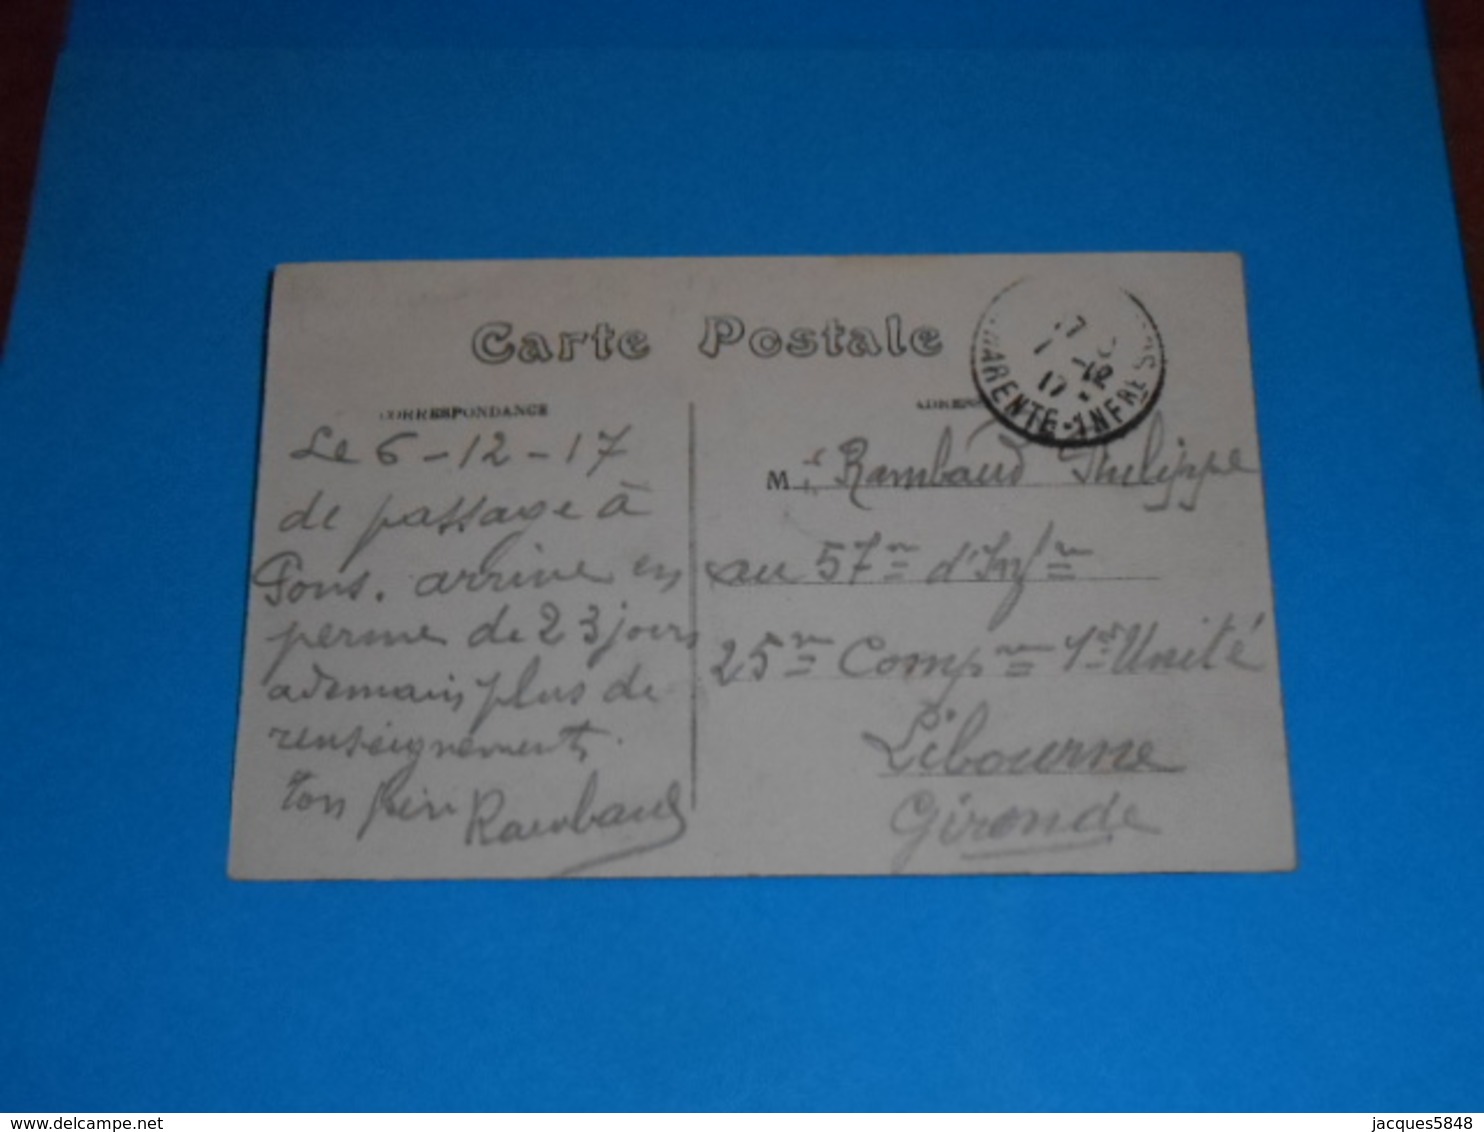 Carte Postale
CORRESPONDANCE
Le 6-12-17
de passage à
Pons. arrive en
perme de 23 jours
ademain plus de
renseignements
ton père Rambaud
M r Rambaud Philippe
au 57me d'Infie
25me Compie 1re Unité
Libourne
Gironde
17
12
17
CHARENTE-INFRE
www.delcampe.net
jacques5848